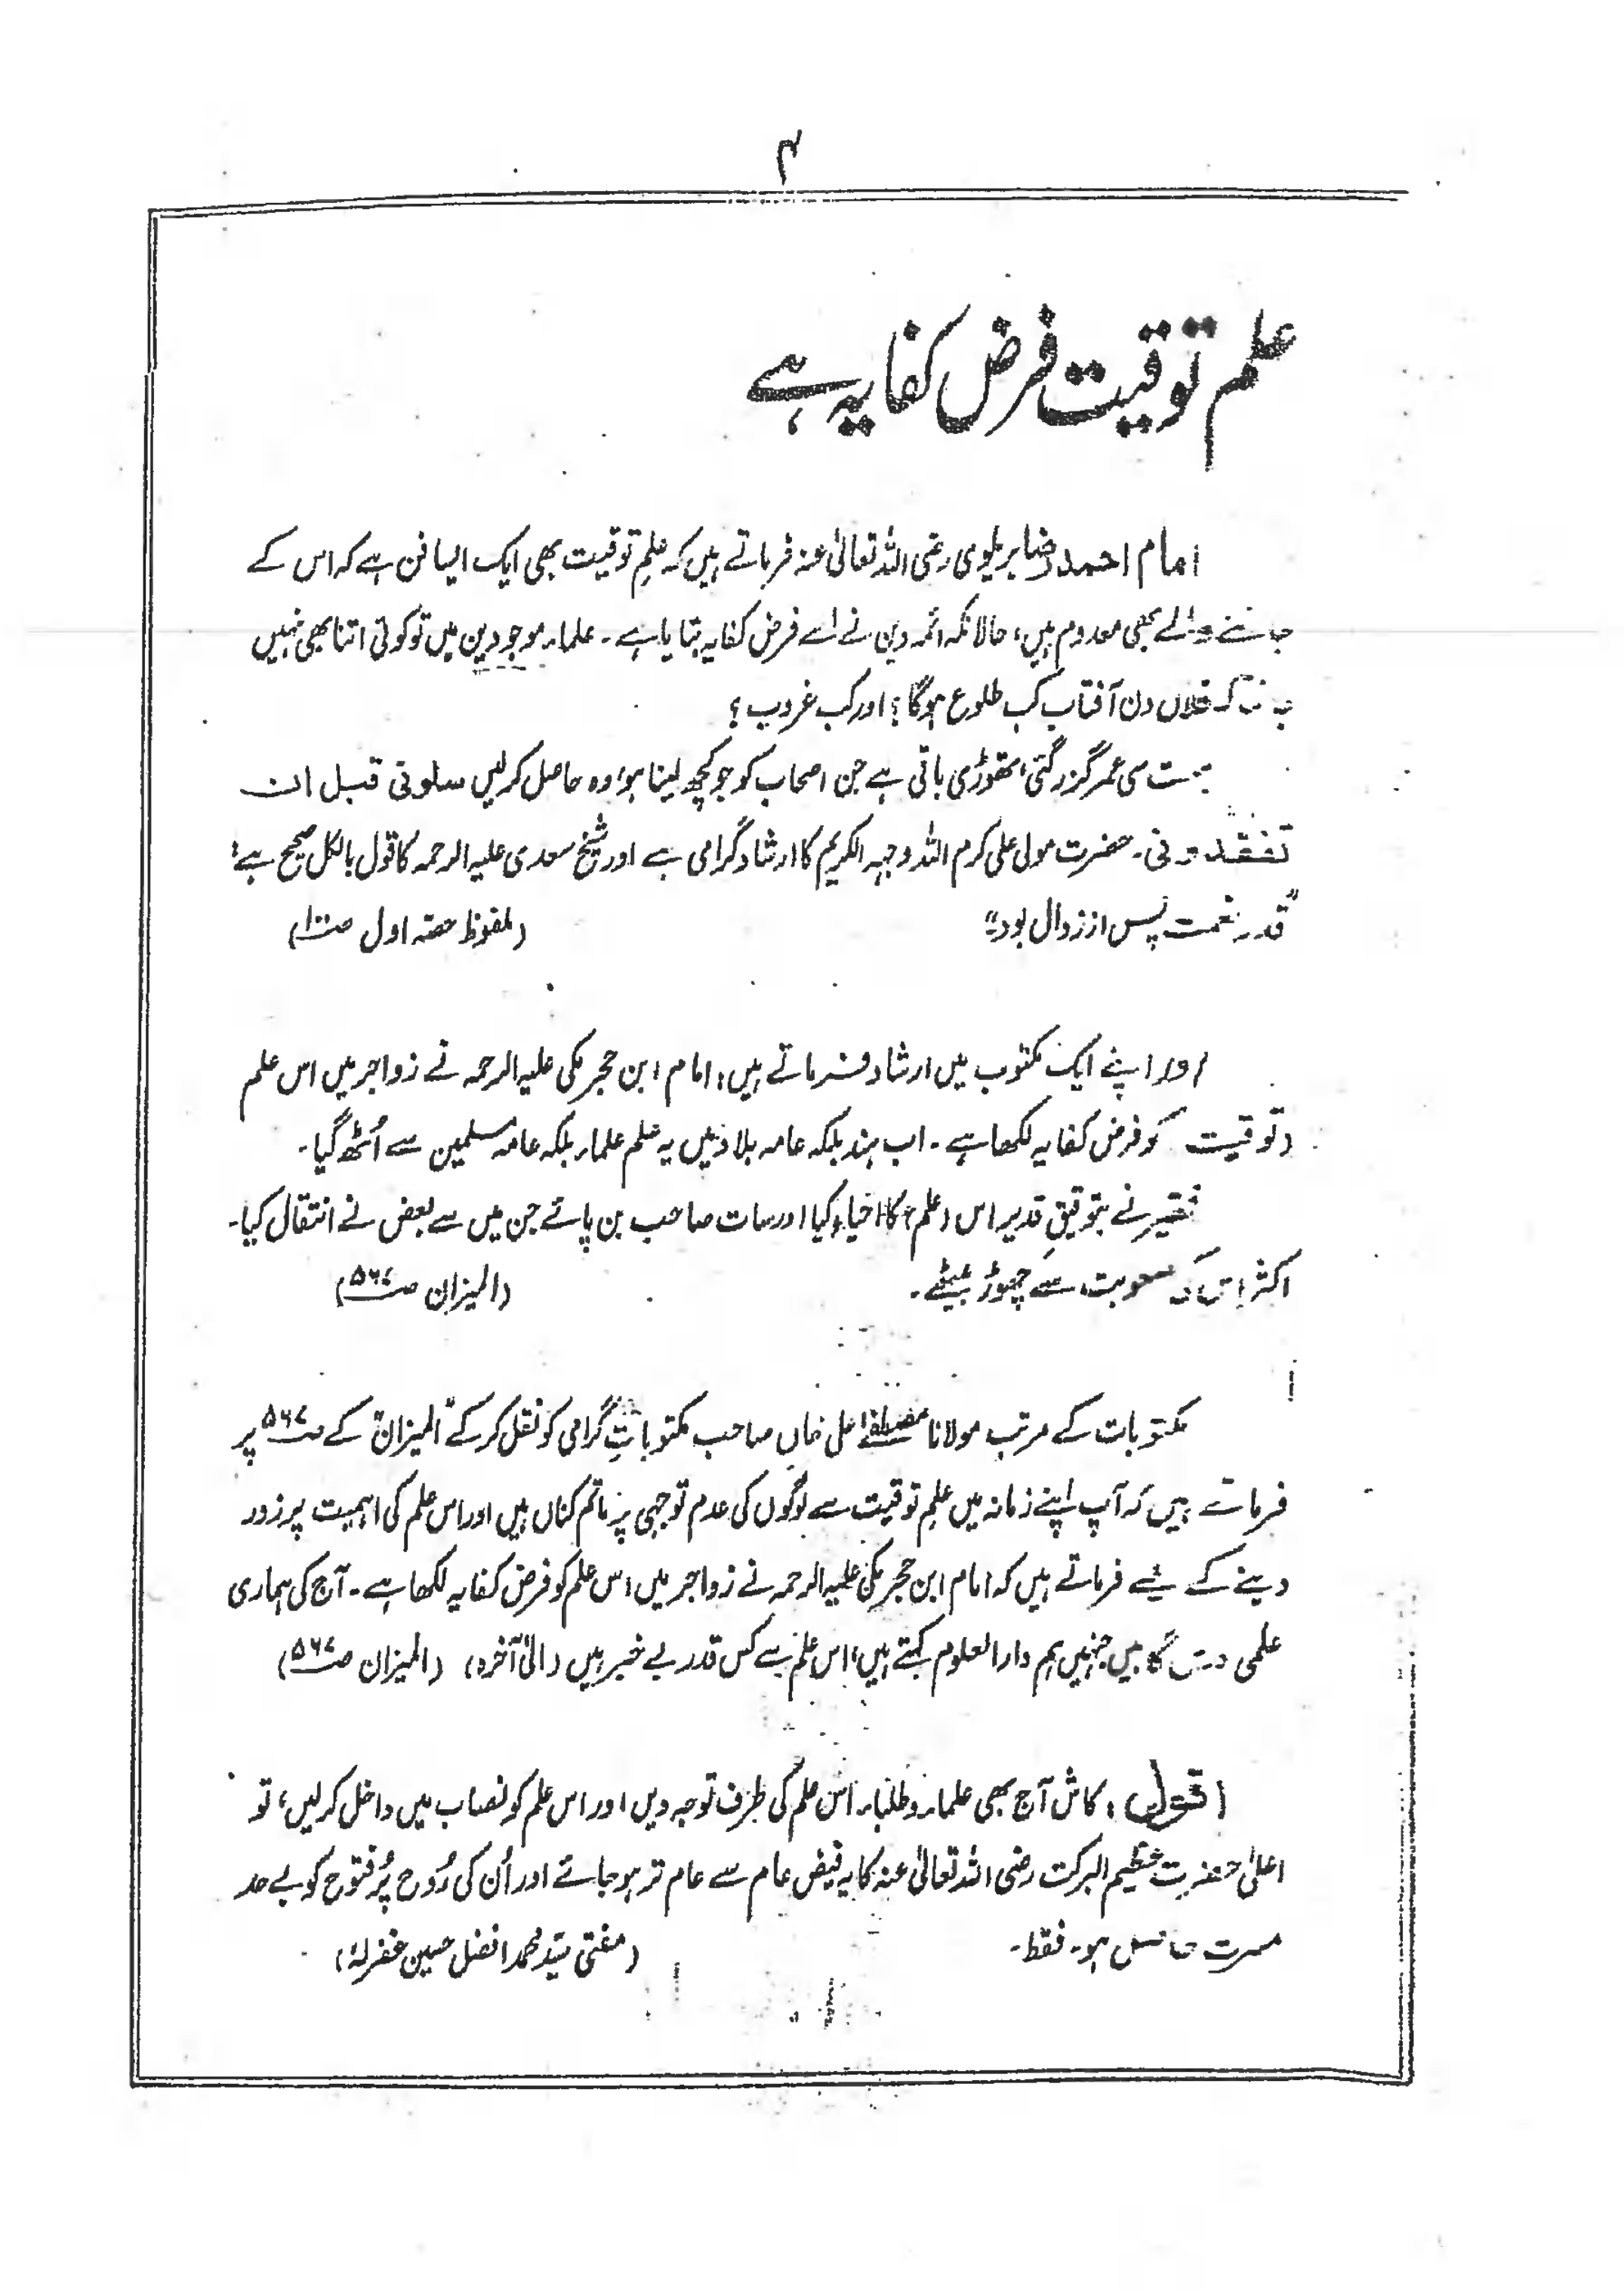 ۴
علم توقیت فرض کفایہ ہے
امام احمد رضا بریلوی رضی اللہ تعالیٰ عنہ فرماتے ہیں کہ علمِ توقیت بھی ایک ایسا فن ہے کہ اس کے
جاننے والے بھی معدوم ہیں، حالانکہ ائمہ دین نے اسے فرض کفایہ بتایا ہے۔ علماء موجودین میں تو کوئی اتنا بھی نہیں
جانتا کہ فلاں دن آفتاب کب طلوع ہوگا؟ اور کب غروب؟
بہت سی عمر گزر گئی، تھوڑی باقی ہے جن اصحاب کو جو کچھ لینا ہو، وہ حاصل کرلیں سلونی قبل ان
تفقدونی۔ حضرت مولیٰ علی کرم اللہ وجہہ الکریم کا ارشاد گرامی ہے اور شیخ سعدی علیہ الرحمہ کا قول بالکل صحیح ہے؛
"قدر نعمت پس از زوال بود" (ملفوظ حصہ اول صـ)
اور اپنے ایک مکتوب میں ارشاد فرماتے ہیں، امام ابن حجر مکی علیہ الرحمہ نے زواجر میں اس علم
(توقیت کو فرض کفایہ لکھا ہے۔ اب ہند بلکہ عامہ بلاد میں یہ علم علماء بلکہ عامہ مسلمین سے اُٹھ گیا۔
فقیر نے بتوفیقِ قدیر اس (علم) کا احیاء کیا اور سات صاحب بن پائے جن میں سے بعض نے انتقال کیا۔
اکثر اس کی صعوبت سے چھوڑ بیٹھے۔ (المیزان صـ۵۶۷)
مکتوبات کے مرتب مولانا مصطفےٰ علی خاں صاحب مکتوباتِ گرامی کو نقل کرکے "المیزان" کے صـ۵۶۷ پر
فرماتے ہیں کہ آپ اپنے زمانہ میں علمِ توقیت سے لوگوں کی عدم توجہی پر ماتم کناں ہیں اور اس علم کی اہمیت پر زور
دینے کے لئے فرماتے ہیں کہ امام ابن حجر مکی علیہ الرحمہ نے زواجر میں اس علم کو فرض کفایہ لکھا ہے۔ آج کی ہماری
علمی درس گاہیں جنہیں ہم دارالعلوم کہتے ہیں، اس علم سے کس قدر بے خبر ہیں (الیٰ آخرہ) (المیزان صـ۵۶۷)
اقول، کاش آج بھی علماء و طلباء اس علم کی طرف توجہ دیں اور اس علم کو نصاب میں داخل کرلیں، تو
اعلیٰ حضرت عظیم البرکت رضی اللہ تعالیٰ عنہ کا یہ فیض عام سے عام تر ہو جائے اور اُن کی رُوح پُرفتوح کو بے حد
مسرت حاصل ہو۔ فقط۔ (مفتی سید محمد افضل حسین غفرلہٗ)